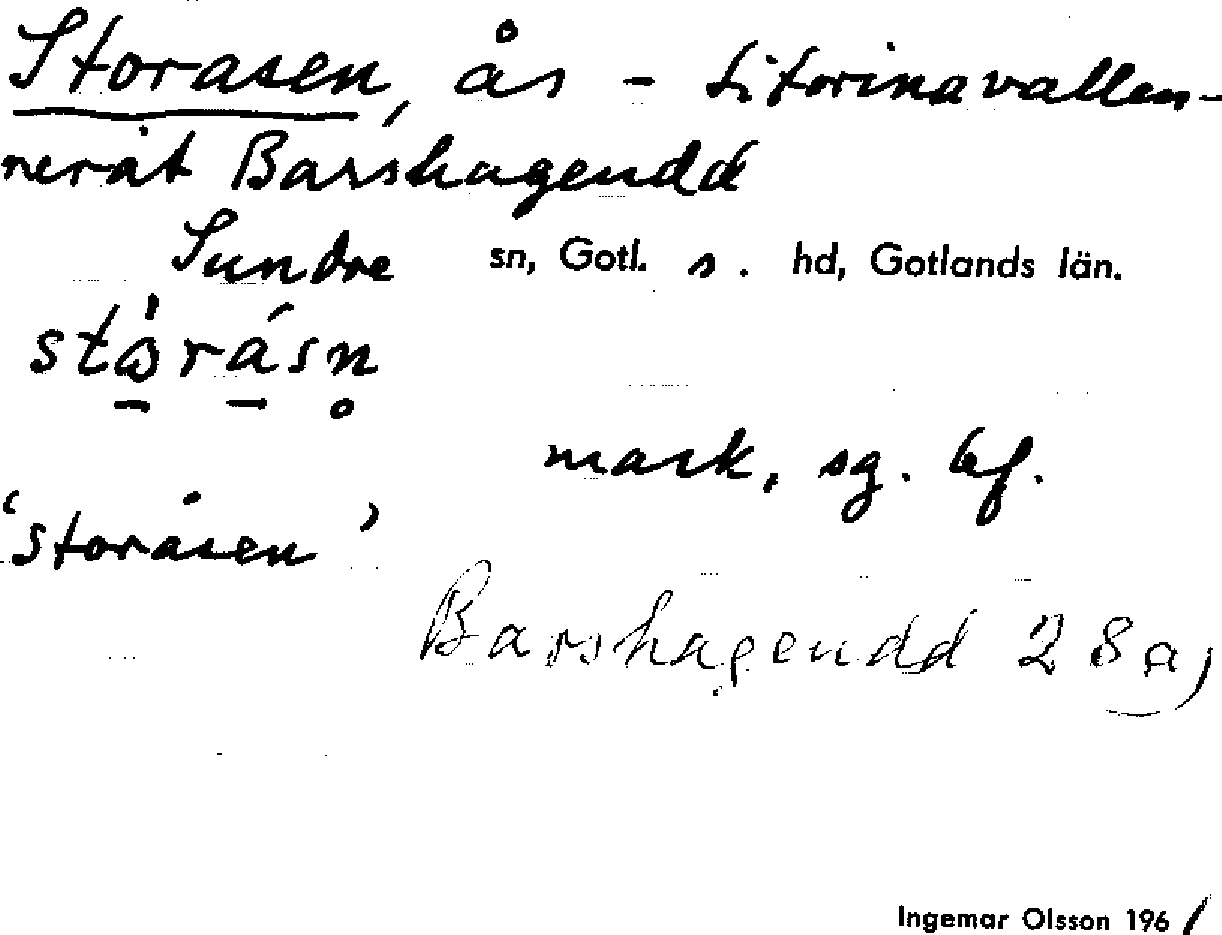 Storasen, ås - Litorinavallen -
neråt Barshagendd
Sundre sn, Gotl. s. hd, Gotlands län.
stórásn
mask, sg. bf.
'storåsen'
Barshagendd 2 8a)
Ingemar Olsson 1961